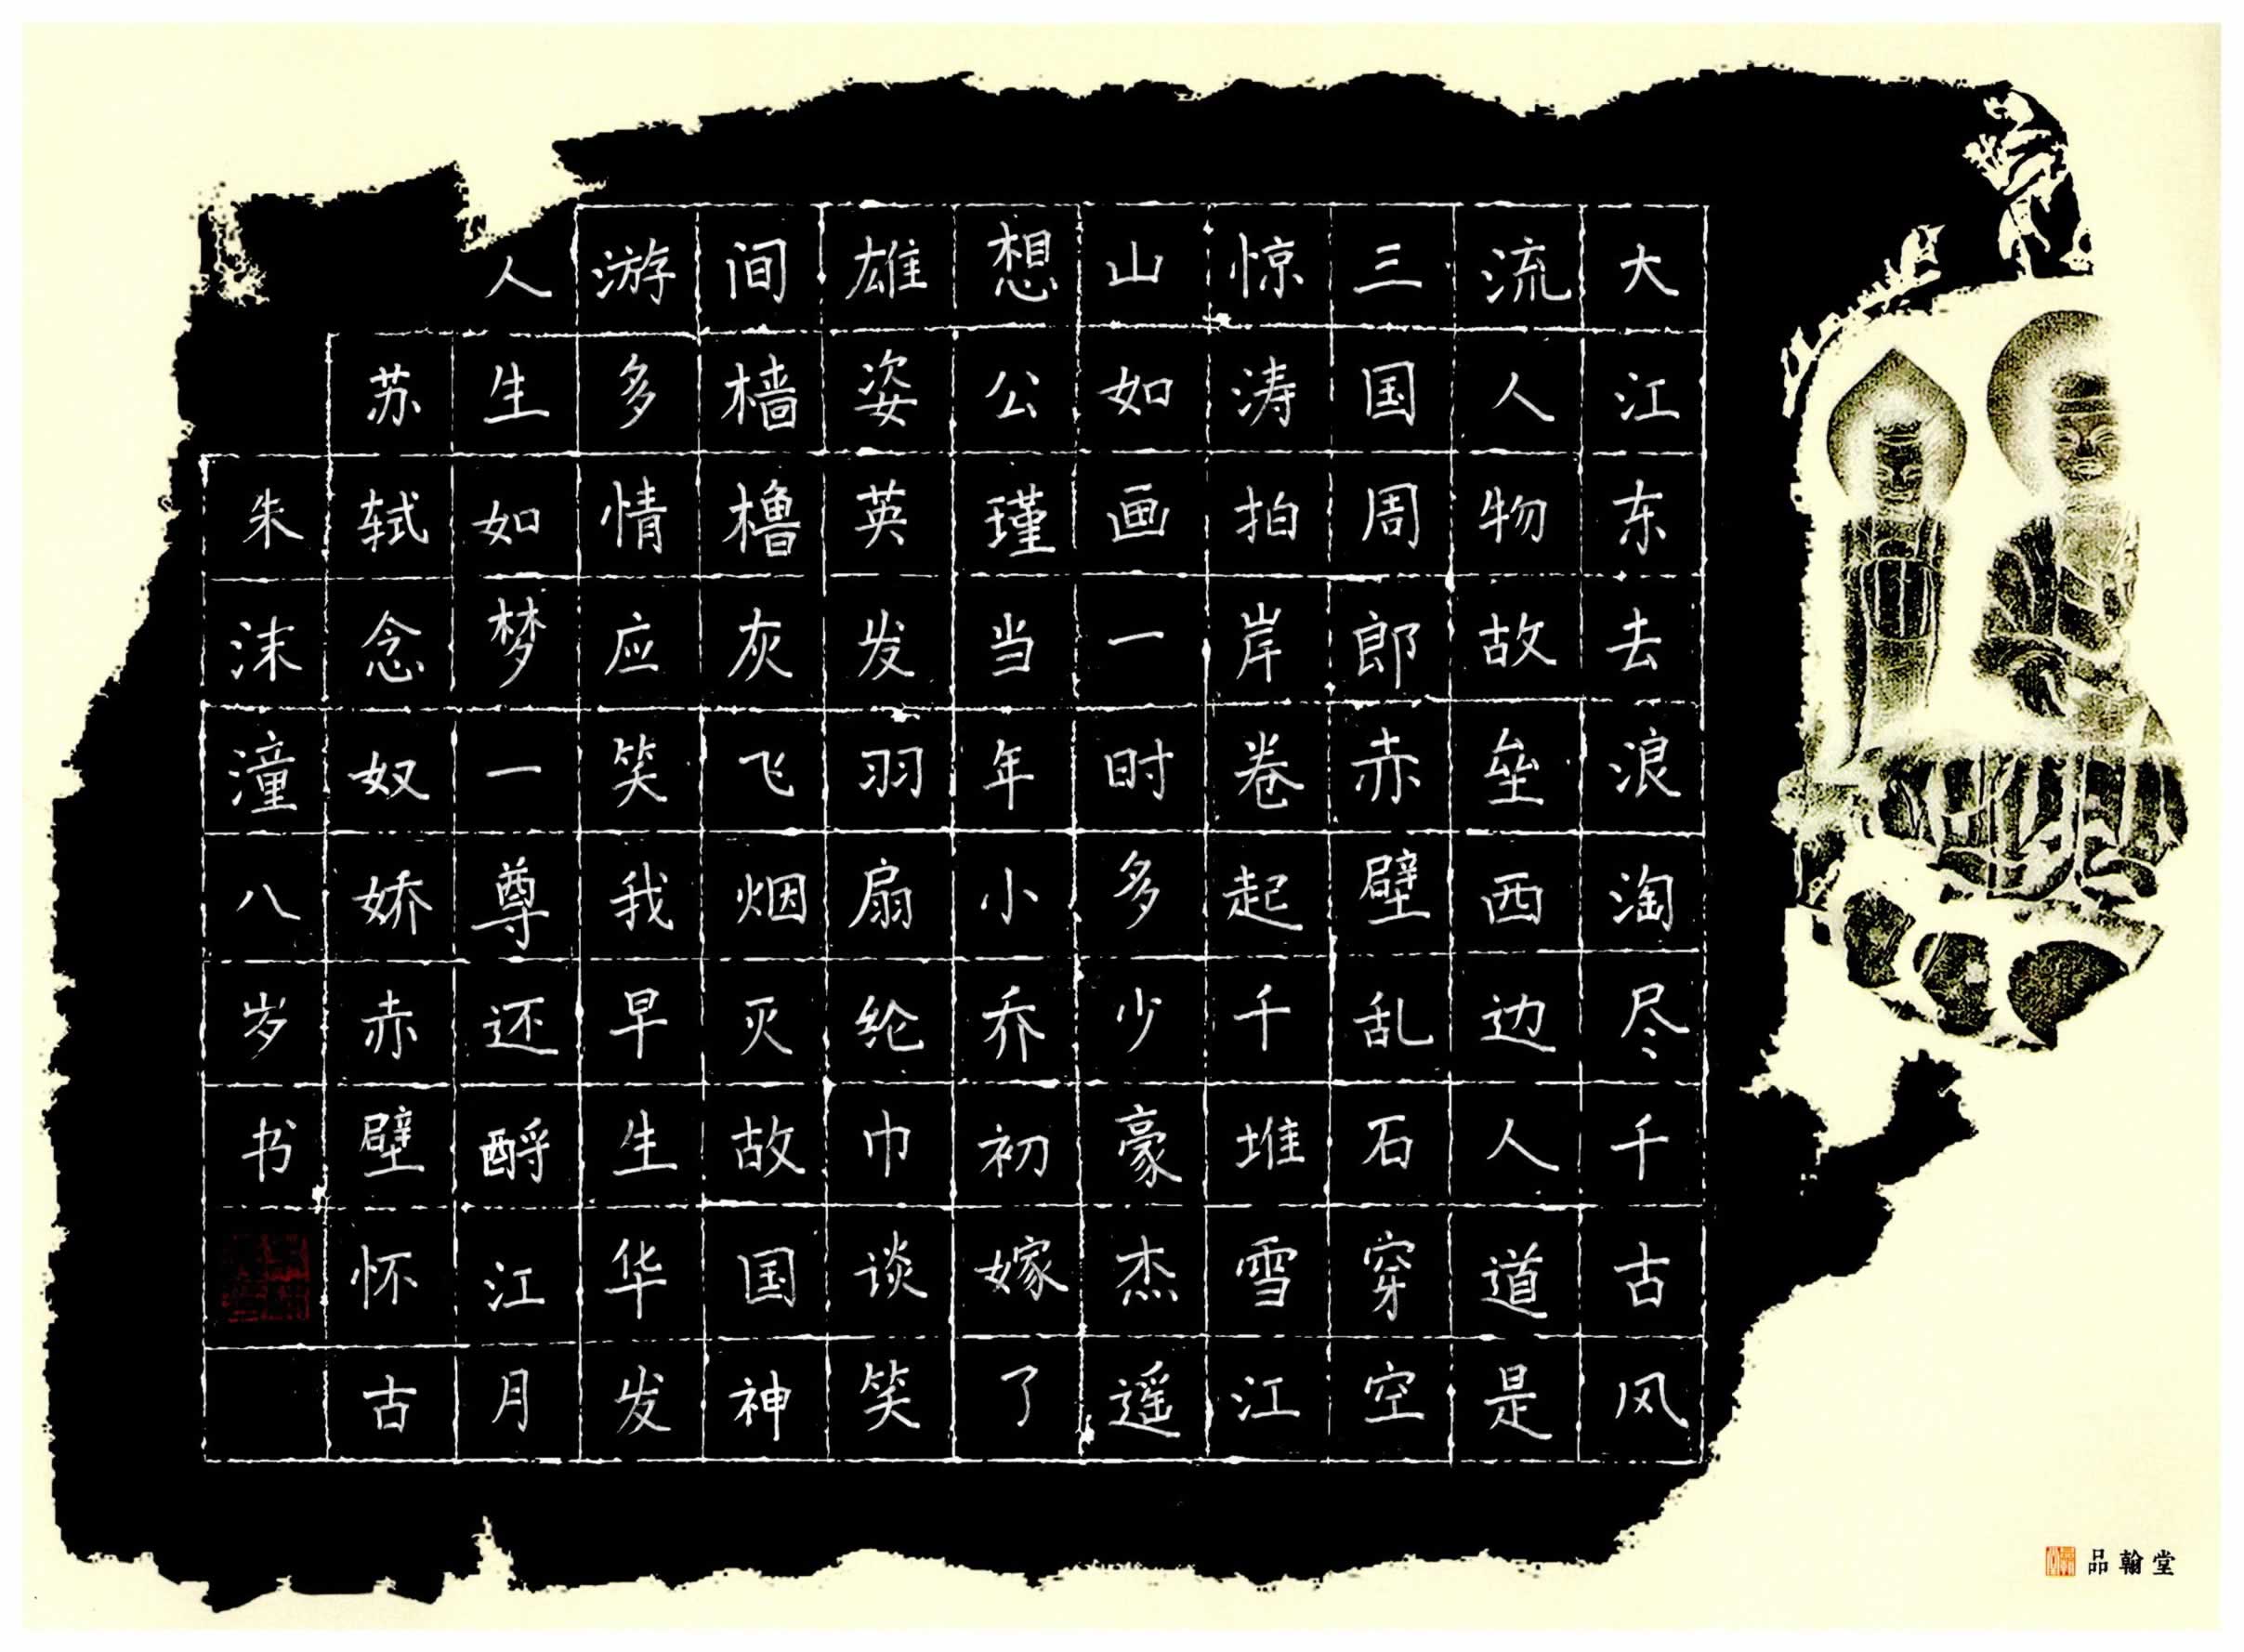 大江东去浪淘尽千古风
流人物故垒西边人道是
三国周郎赤壁乱石穿空
惊涛拍岸卷起千堆雪江
山如画一时多少豪杰遥
想公瑾当年小乔初嫁了
雄姿英发羽扇纶巾谈笑
间樯橹灰飞烟灭故国神
游多情应笑我早生华发
人生如梦一尊还酹江月
苏轼念奴娇赤壁怀古
朱沫潼八岁书
品翰堂